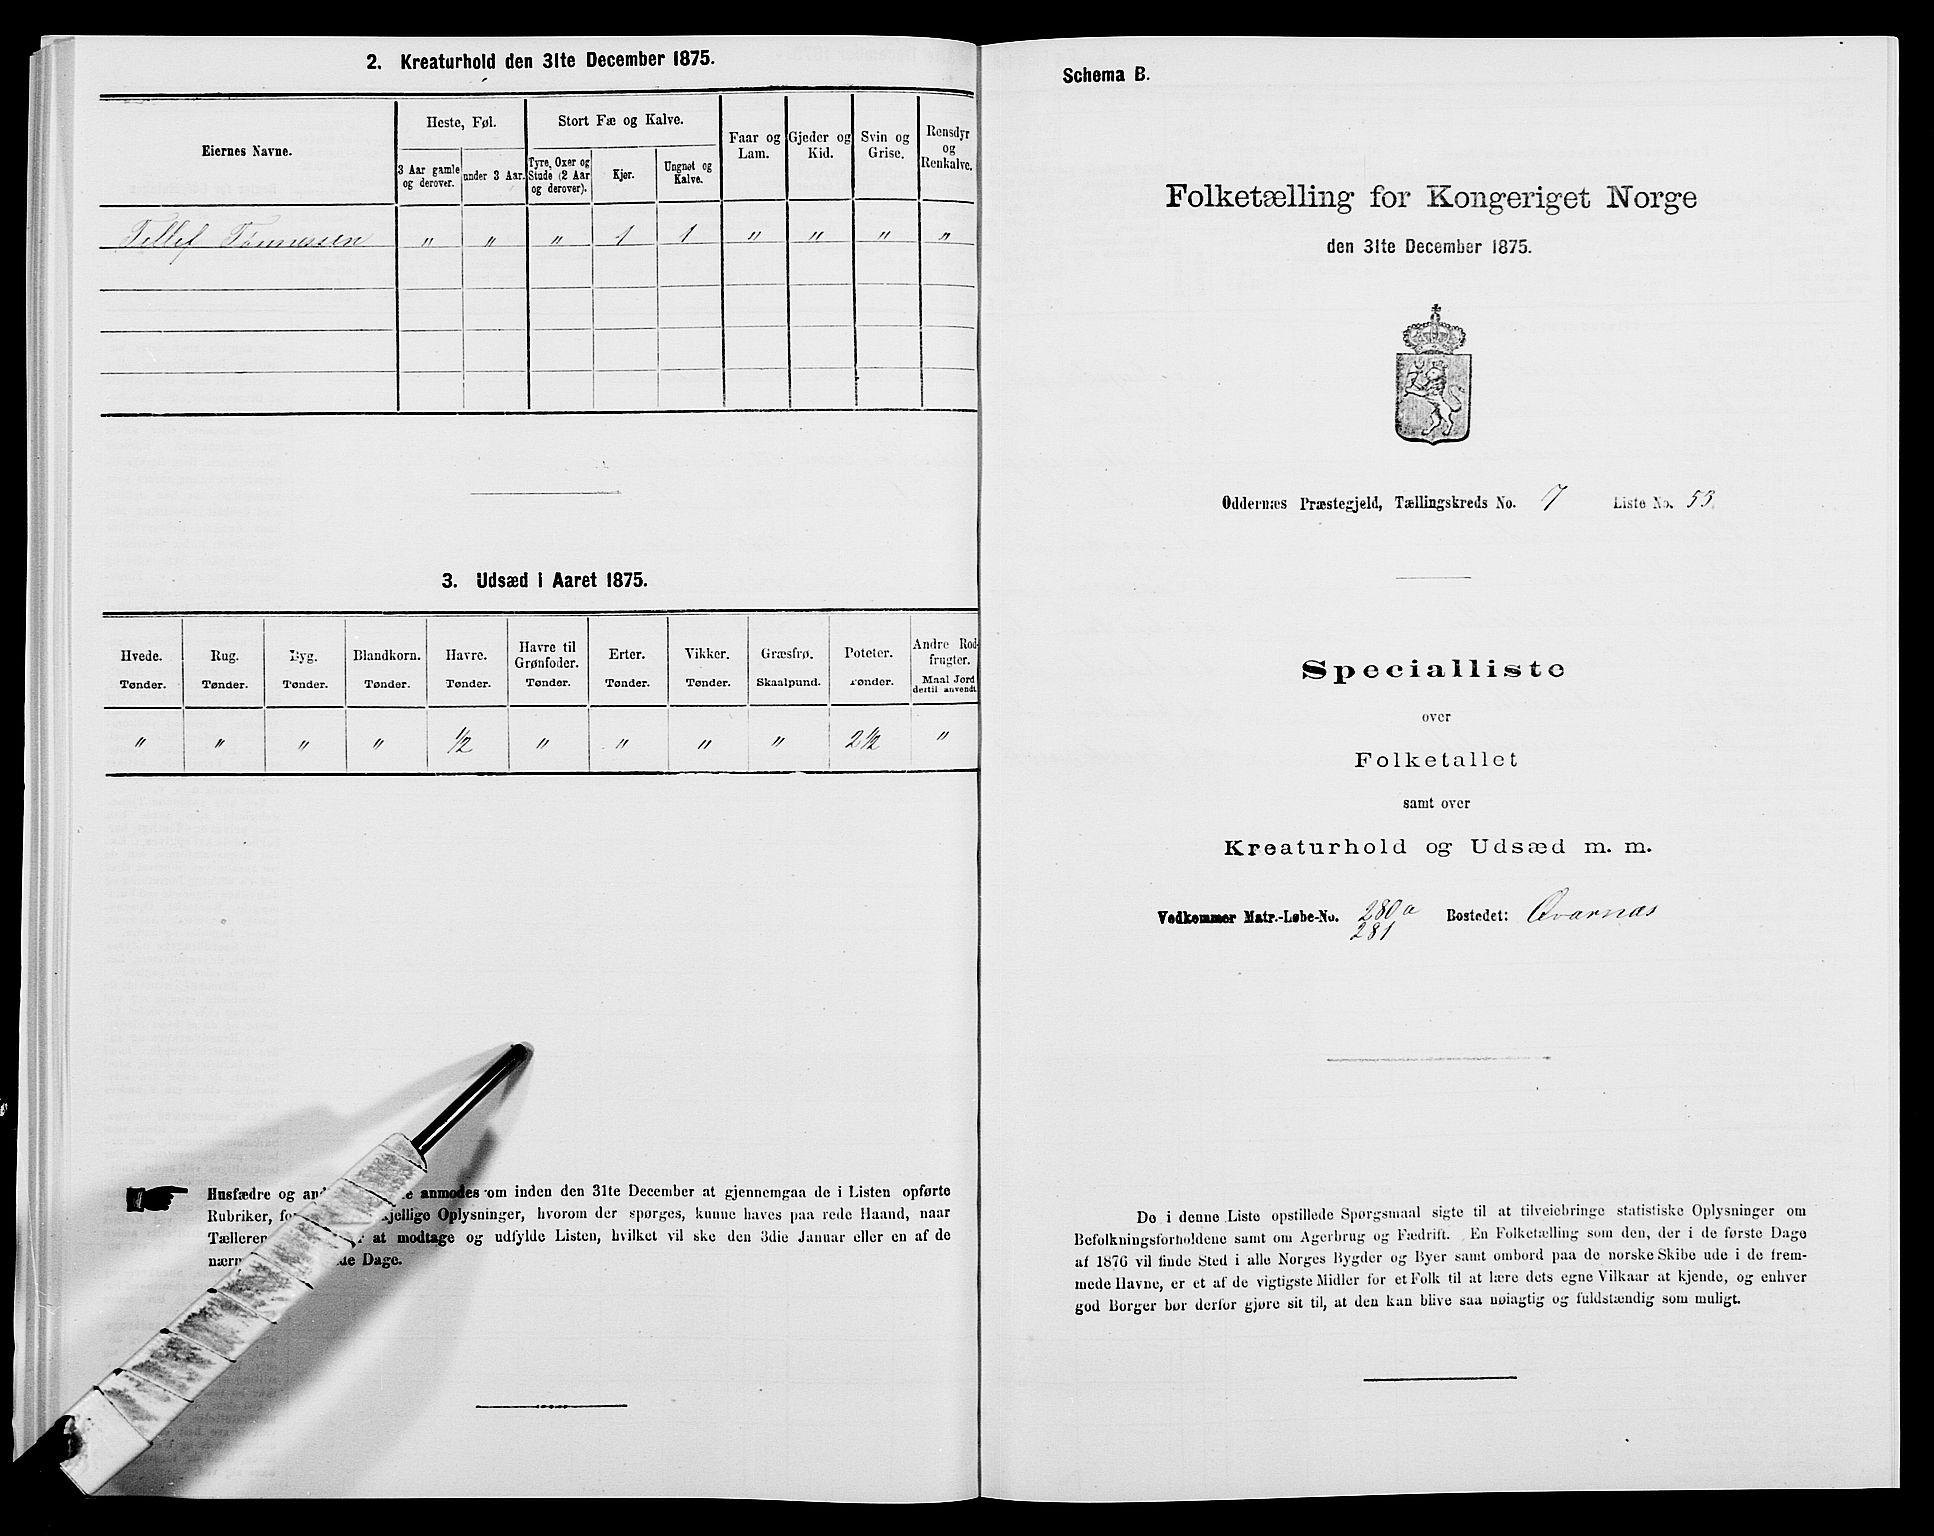 2. Kreaturhold den 31te December 1875.
Eiernes Navne.
Heste, Føl.
Stort Fæ og Kalve.
Faar og Lam.
Gjeder og Kid.
Svin og Grise.
Rensdyr og Renkalve.
3 Aar gamle og derover.
under 3 Aar.
Tyre, Oxer og Stude (2 Aar og derover).
Kjør.
Ungnøt og Kalve.
Tellef Tønnessen " " " 1 1 " " " "
3. Udsæd i Aaret 1875.
Hvede. Rug. Byg. Blandkorn. Havre. Havre til Grønfoder. Erter. Vikker. Græsfrø. Poteter. Andre Rodfrugter.
Tønder. Tønder. Tønder. Tønder. Tønder. Tønder. Tønder. Tønder. Skaalpund. Tønder. Maal Jord dertil anvendt.
" " " " 1/2 " " " " 2 1/2 "
Husfædre og anmodes om inden den 31te December at gjennemgaa de i Listen opførte
Rubriker, Oplysninger, hvorom der spørges, kunne haves paa rede Haand, naar
Tælleren at modtage og udfylde Listen, hvilket vil ske den 3die Januar eller en af de
Dage.
Schema B.
Folketælling for Kongeriget Norge
den 31te December 1875.
Oddernæs Præstegjeld, Tællingskreds No. 7 Liste No. 53.
Specialliste
over
Folketallet
samt over
Kreaturhold og Udsæd m. m.
Vedkommer Matr.-Løbe-No. 280a Bostedet:
281
De i denne Liste opstillede Spørgsmaal sigte til at tilveiebringe statistiske Oplysninger om
Befolkningsforholdene samt om Agerbrug og Fædrift. En Folketælling som den, der i de første Dage
af 1876 vil finde Sted i alle Norges Bygder og Byer samt ombord paa de norske Skibe ude i de frem-
mede Havne, er et af de vigtigste Midler for et Folk til at lære dets egne Vilkaar at kjende, og enhver
god Borger bør derfor gjøre sit til, at den kan blive saa nøiagtig og fuldstændig som muligt.